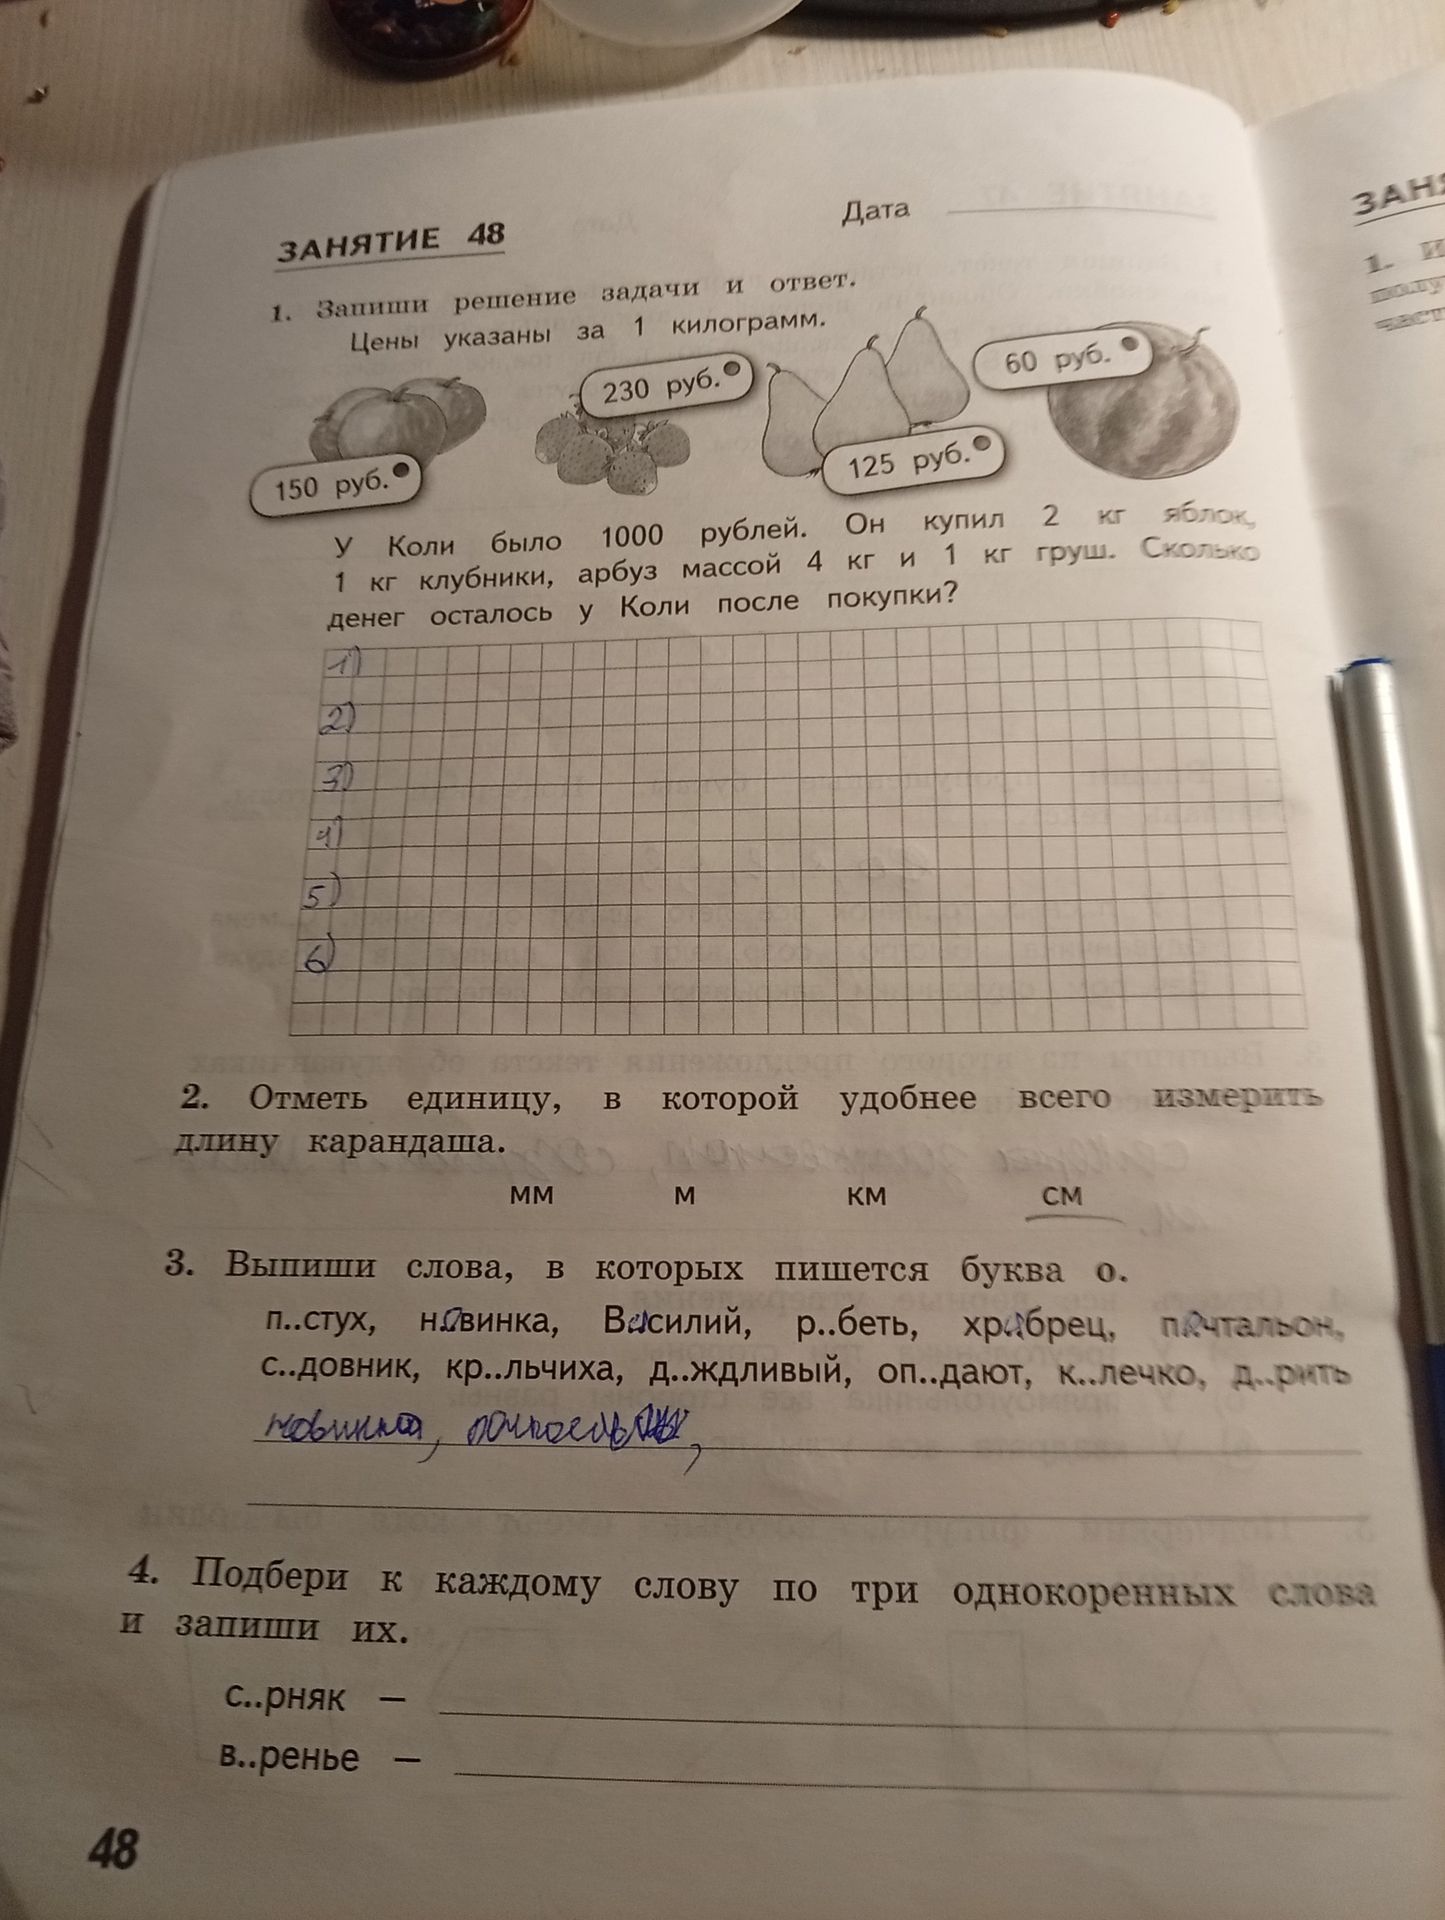 ЗАНЯТИЕ 48
Дата
1. Запиши решение задачи и ответ.
Цены указаны за 1 килограмм.
150 руб.
230 руб.
125 руб.
60 руб.
У Коли было 1000 рублей. Он купил 2 кг яблок,
1 кг клубники, арбуз массой 4 кг и 1 кг груш. Сколько
денег осталось у Коли после покупки?
1)
2)
3)
4)
5)
6)
2. Отметь единицу, в которой удобнее всего измерить
длину карандаша.
мм м км см
3. Выпиши слова, в которых пишется буква о.
п..стух, новинка, Василий, р..беть, храбрец, почтальон,
с..довник, кр..льчиха, д..ждливый, оп..дают, к..лечко, д..рить
новинка,
4. Подбери к каждому слову по три однокоренных слова
и запиши их.
с..рняк —
в..ренье —
48
ЗАНЯ
1. И
полу
част